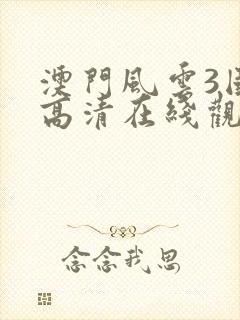 澳門風雲3
高清在綫觀
念念我思